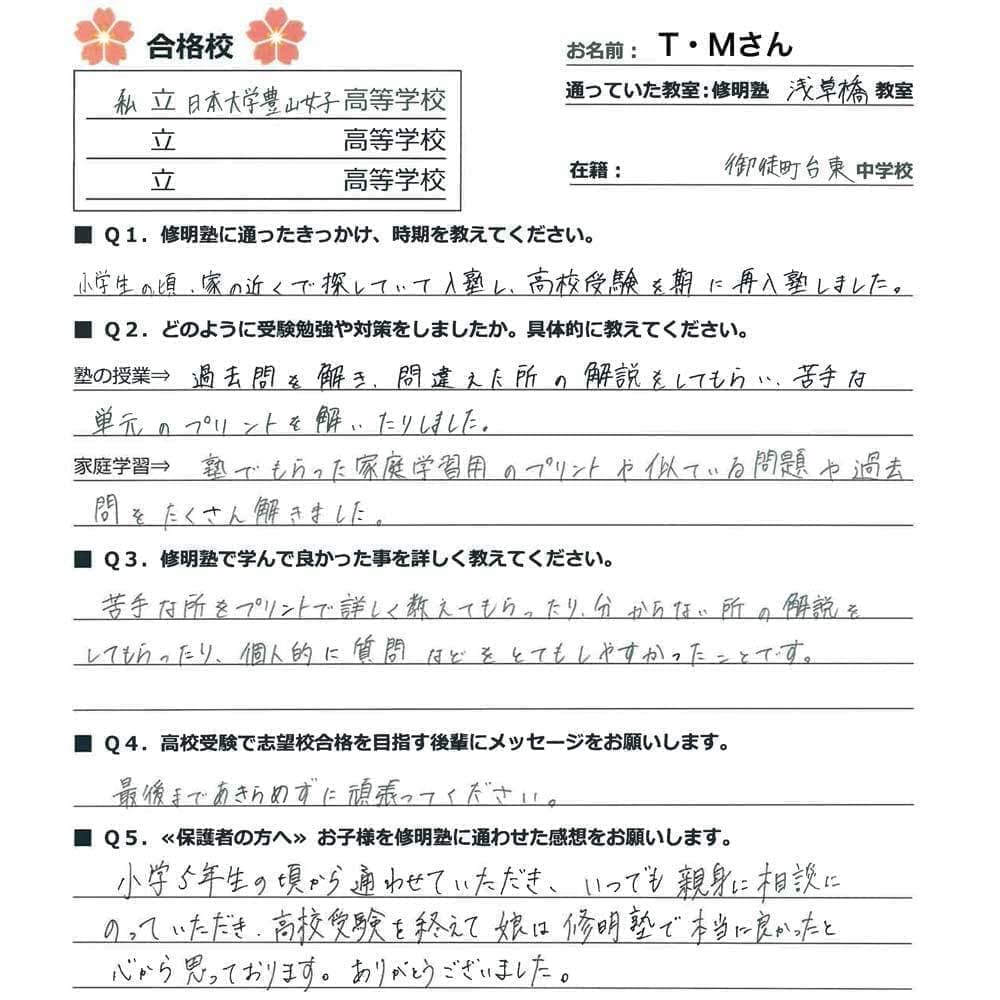 合格校
お名前： T・Mさん
私 立 日本大学豊山女子 高等学校
通っていた教室：修明塾 浅草橋 教室
立 高等学校
立 高等学校
在籍： 御徒町台東 中学校
■ Q1．修明塾に通ったきっかけ、時期を教えてください。
小学生の頃、家の近くで探していて入塾し、高校受験を期に再入塾しました。
■ Q2．どのように受験勉強や対策をしましたか。具体的に教えてください。
塾の授業⇒ 過去問を解き、問違えた所の解説をしてもらい、苦手な
単元のプリントを解いたりしました。
家庭学習⇒ 塾でもらった家庭学習用のプリントや似ている問題や過去
問をたくさん解きました。
■ Q3．修明塾で学んで良かった事を詳しく教えてください。
苦手な所をプリントで詳しく教えてもらったり、分からない所の解説を
してもらったり、個人的に質問などをとてもしやすかったことです。
■ Q4．高校受験で志望校合格を目指す後輩にメッセージをお願いします。
最後まであきらめずに頑張ってください。
■ Q5．≪保護者の方へ≫ お子様を修明塾に通わせた感想をお願いします。
小学5年生の頃から通わせていただき、いつでも親身に相談に
のっていただき、高校受験を終えて娘は修明塾で本当に良かったと
心から思っております。ありがとうございました。